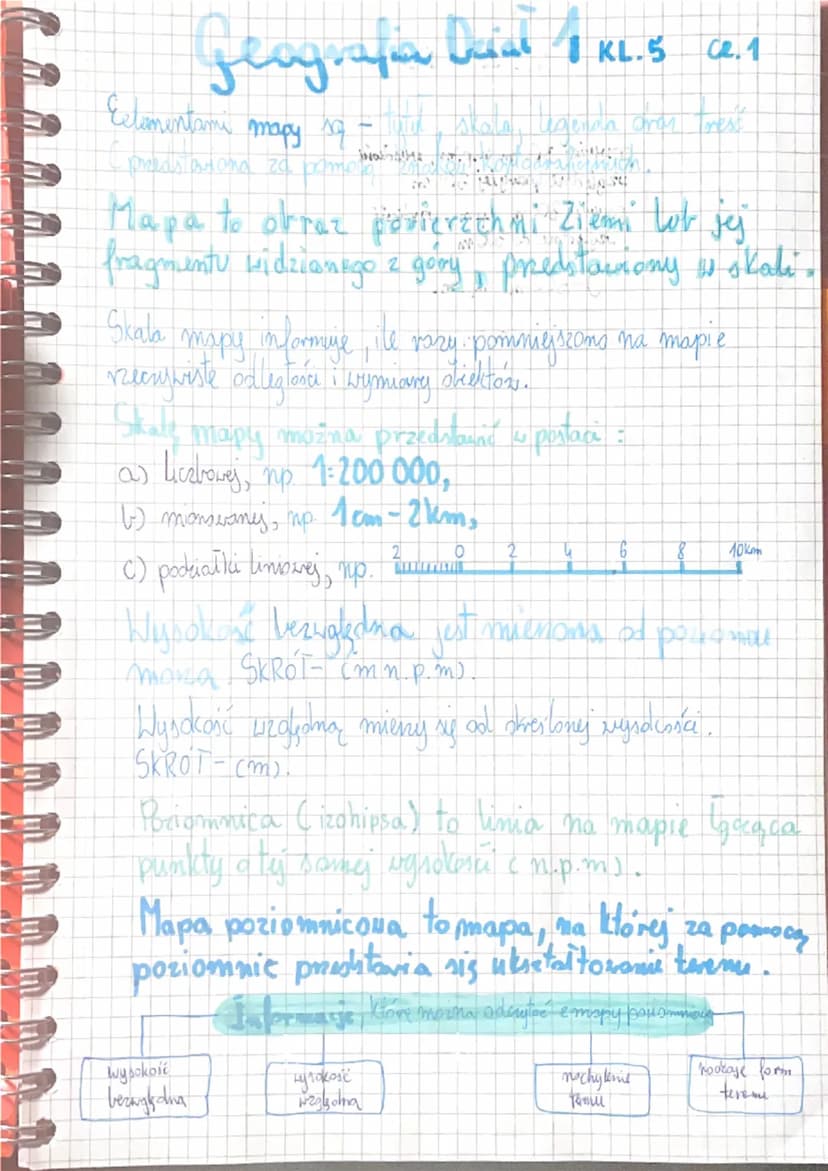 Geografia Dział 1 KL.5 cz.1
Elementami mapy są - tytuł, skala, legenda oraz treść
(przedstawiona za pomocą znaków kartograficznych.
Mapa to obraz powierzchni Ziemi lub jej
fragmentu widzianego z góry, przedstawiony w skali.
Skala mapy informuje, ile razy pomniejszono na mapie
rzeczywiste odległości i wymiary obiektów.
Skalę mapy można przedstawić w postaci:
a) liczbowej, np. 1:200 000,
b) mianowanej, np. 1cm-2km,
c) podziałki liniowej, np. 2 0 2 4 6 8 10km
Wysokość bezwzględna jest mierzona od poziomu
morza. SKRÓT- (m n.p.m).
Wysokość względną mierzy się od określonej wysokości.
SKRÓT- (m).
Poziomnica (izohipsa) to linia na mapie łącząca
punkty o tej samej wysokości (n.p.m).
Mapa poziomicowa to mapa, na której za pomocą
poziomnic przedstawia się ukształtowanie terenu.
Informacje, które można odczytać z mapy poziomnicowej
wysokość bezwzględna
wysokość względna
nachylenie terenu
rodzaje form terenu